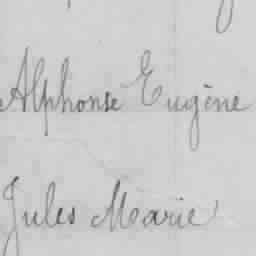 Alphonse Eugène
Jules Marie